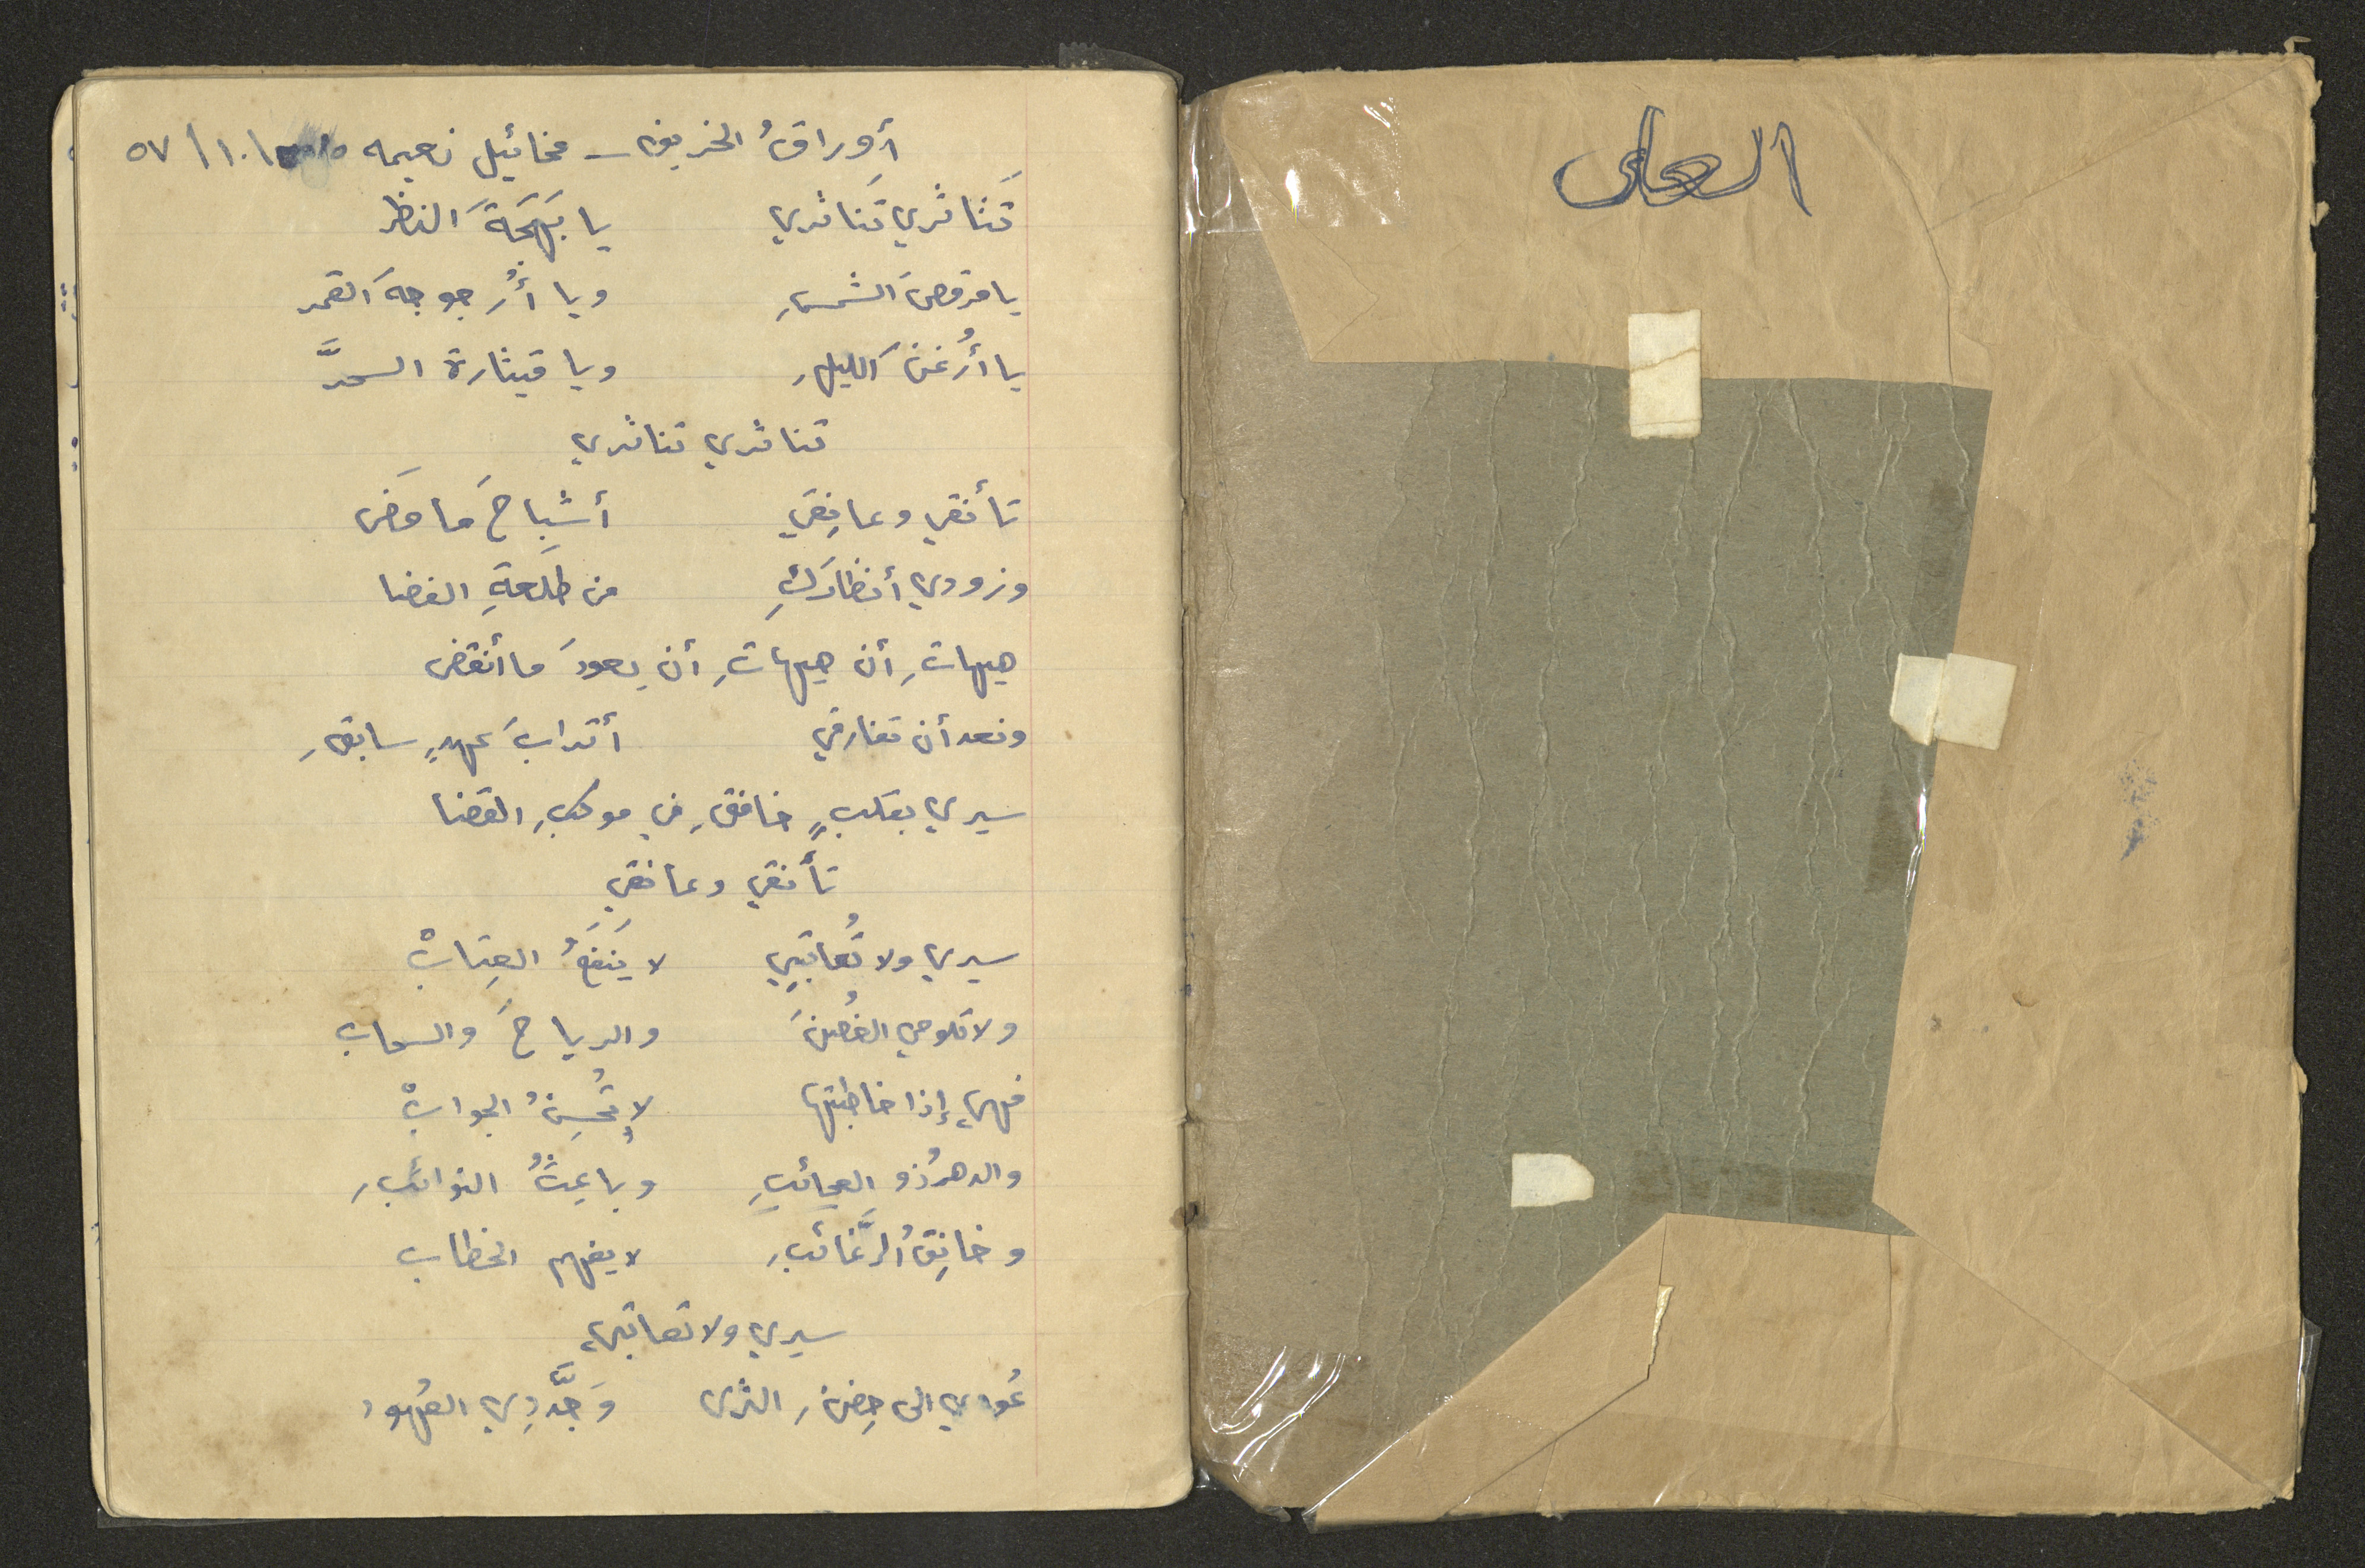 العلى
أوراقُ الخريف – مخائيل نعيمه ١٠/ ٥٧
تَناثري تَناثري يا بَهجَةَ النظر
يا مرقصَ الشمسِ ويا أُرجوحةَ القمر
يا أُرغنَ الليلِ ويا قيثارة السحَّر
تناثري تناثري
تأنقي وعانِقي أشباحَ ما مَضى
وزودي أنظارَكِ من طَلعةِ الفضا
هيهاتِ أن هيهاتِ أن يعودَ ما أنقضى
وبعد أن تفارقي أترابَ عهدٍ سابقِ
سيري بقلبٍ خافقِ في موكبِ القضا
تأنقي وعانقي
سيري ولا تُعاتِبي لا يَنفَعُ العِتابْ
ولا تلومي الغُصنَ والرياحَ والسحاب
فهي إذا خاطبتها لا تُحسِنُ الجوابْ
والدهرُ ذو العجائبِ وباعِثُ النوائبِ
وخانِقُ الرَّغائبِ لا يفهم الخطاب
سيري ولا تعاتبي
عُودي الى حِضنِ الثرى وَجَدَّدِي العُهود